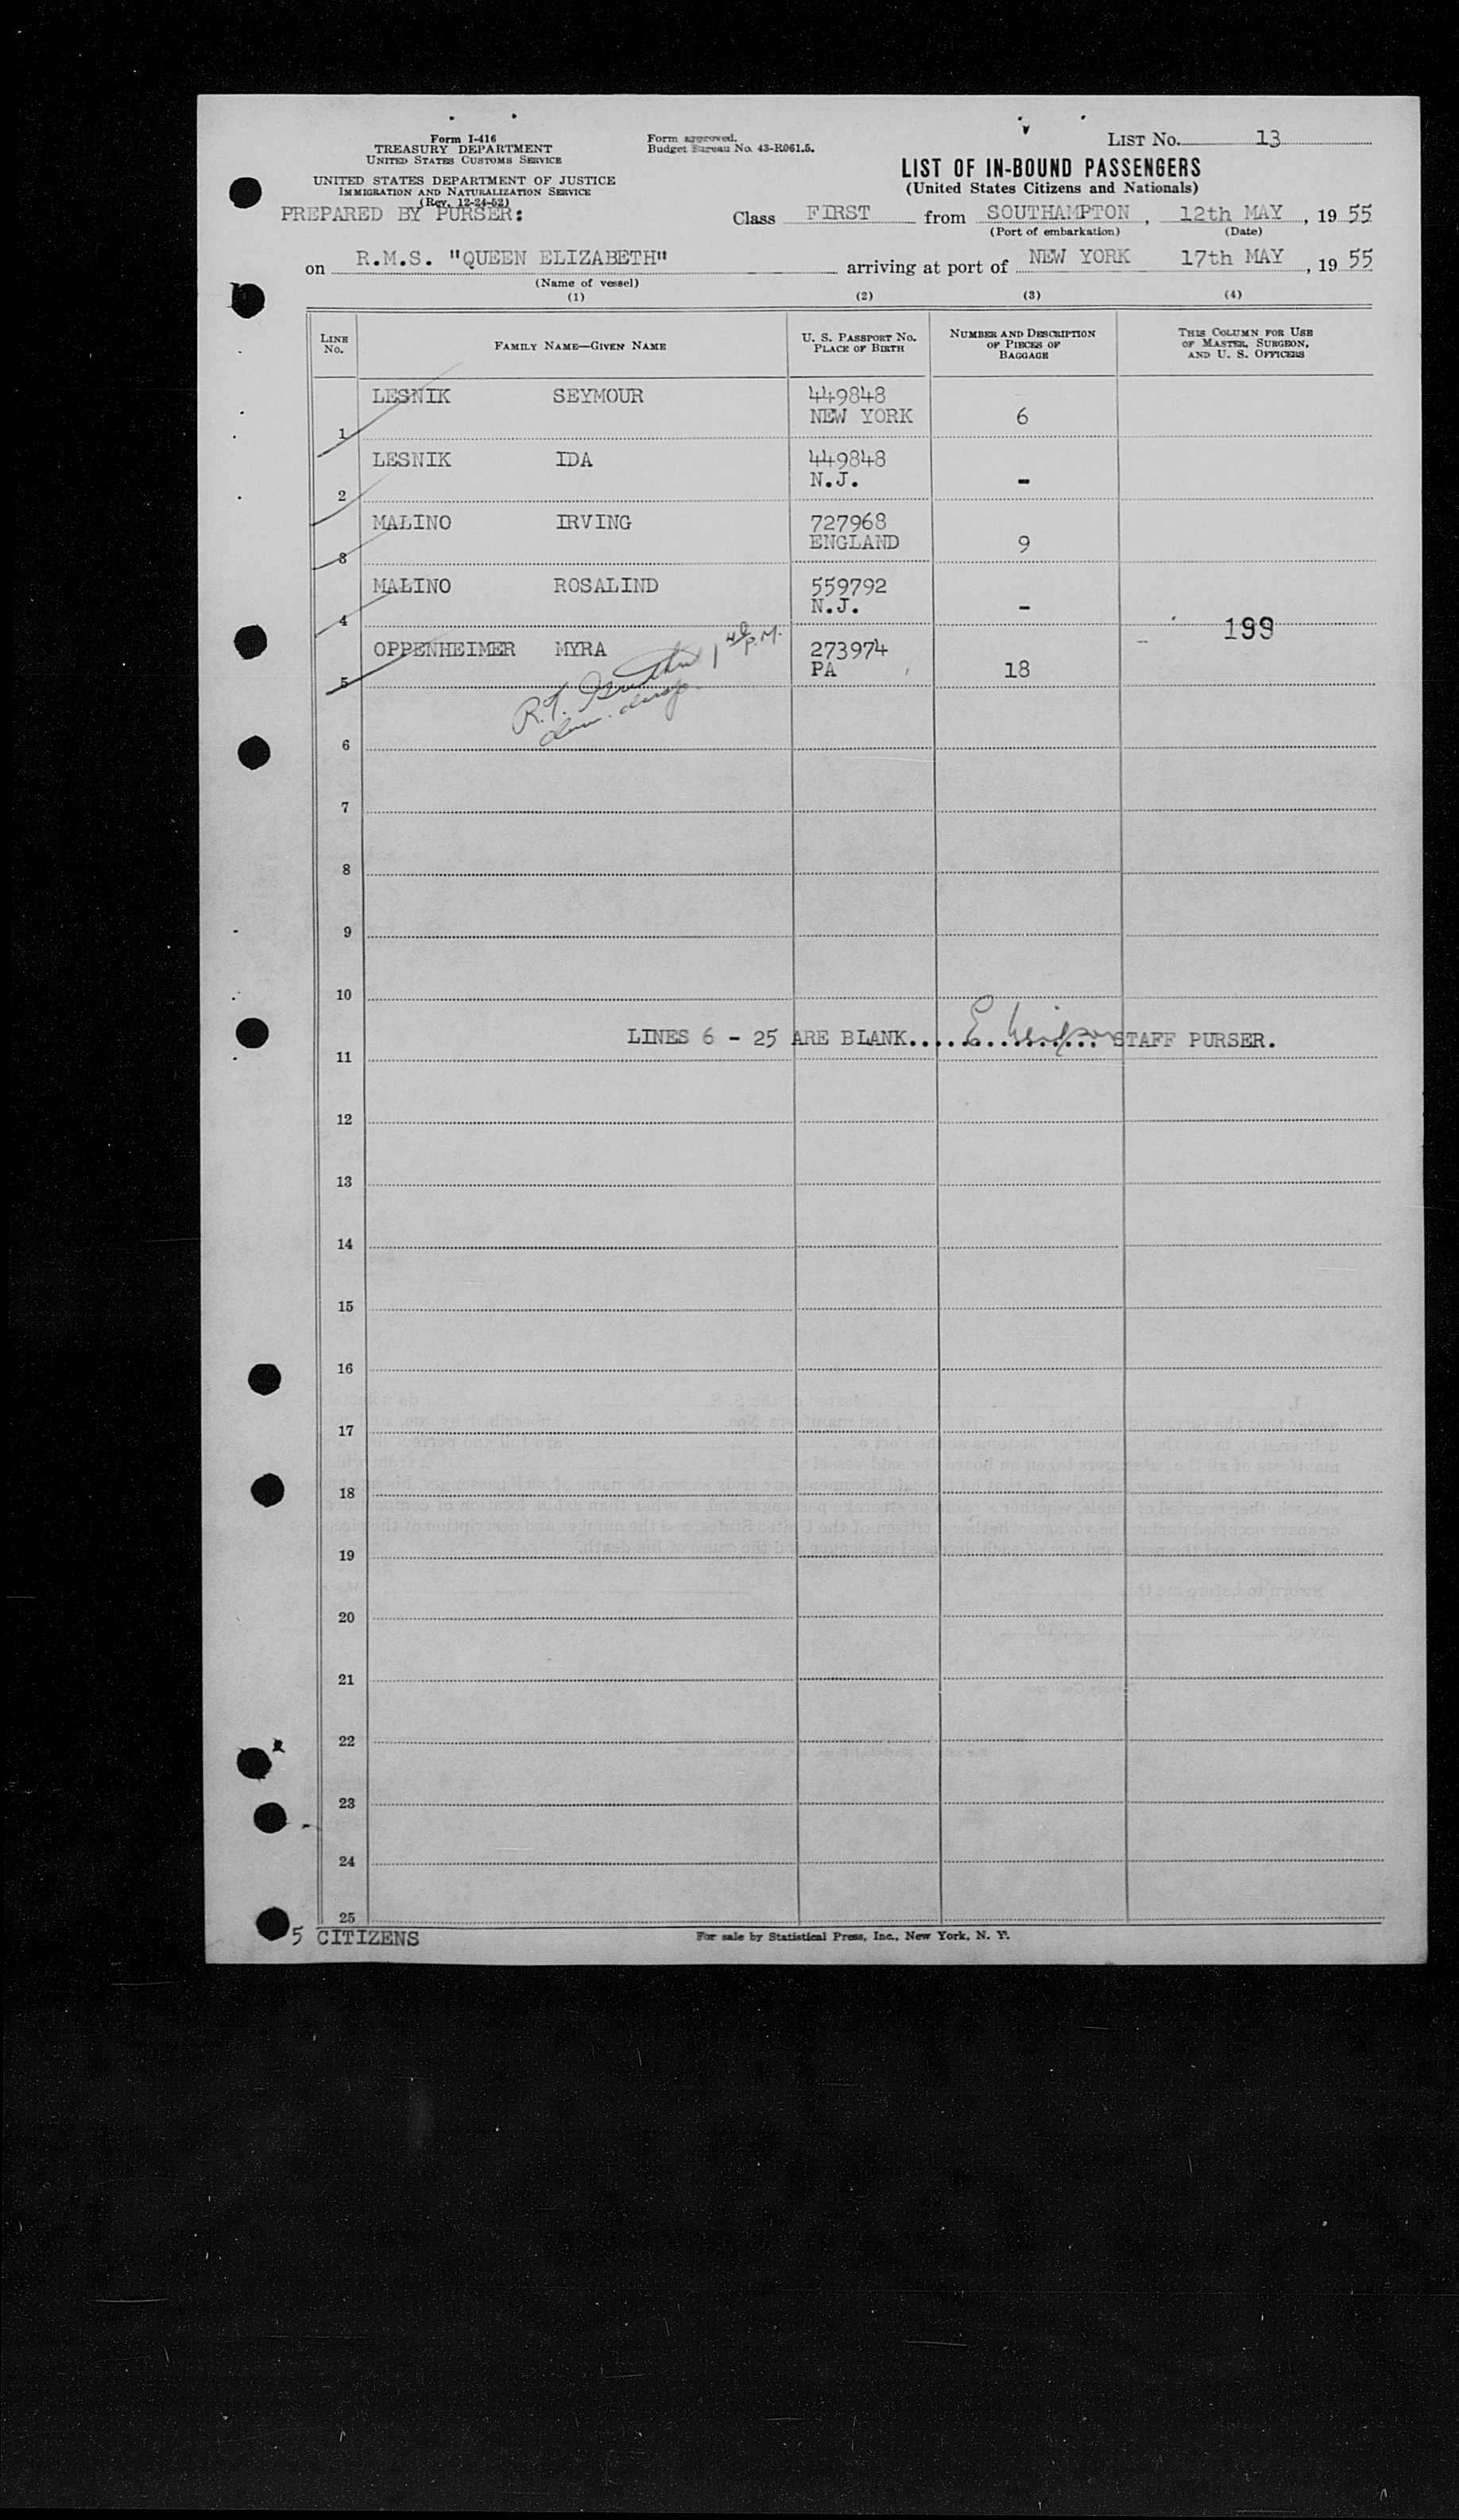 Form I-416
TREASURY DEPARTMENT
UNITED STATES CUSTOMS SERVICE
UNITED STATES DEPARTMENT OF JUSTICE
IMMIGRATION AND NATURALIZATION SERVICE
(Rev. 12-24-52)
PREPARED BY PURSER:
Form approved.
Budget Bureau No. 43-R061.5.
LIST No. 13
LIST OF IN-BOUND PASSENGERS
(United States Citizens and Nationals)
Class FIRST from SOUTHAMPTON, 12th MAY, 19 55
(Port of embarkation) (Date)
on R.M.S. "QUEEN ELIZABETH" arriving at port of NEW YORK 17th MAY, 19 55
(Name of vessel)
(1) (2) (3) (4)
LINE No. FAMILY NAME—GIVEN NAME U. S. PASSPORT No. PLACE OF BIRTH NUMBER AND DESCRIPTION OF PIECES OF BAGGAGE THIS COLUMN FOR USE OF MASTER, SURGEON, AND U. S. OFFICERS
LESNIK SEYMOUR 449848
1 NEW YORK 6
LESNIK IDA 449848
2 N.J. -
MALINO IRVING 727968
3 ENGLAND 9
MALINO ROSALIND 559792
4 N.J. -
199
OPPENHEIMER MYRA 273974
5 PA 18
R.T. P.M.
6
7
8
9
10
LINES 6 - 25 ARE BLANK.................STAFF PURSER.
11
12
13
14
15
16
17
18
19
20
21
22
23
24
25
5 CITIZENS
For sale by Statistical Press, Inc., New York, N. Y.